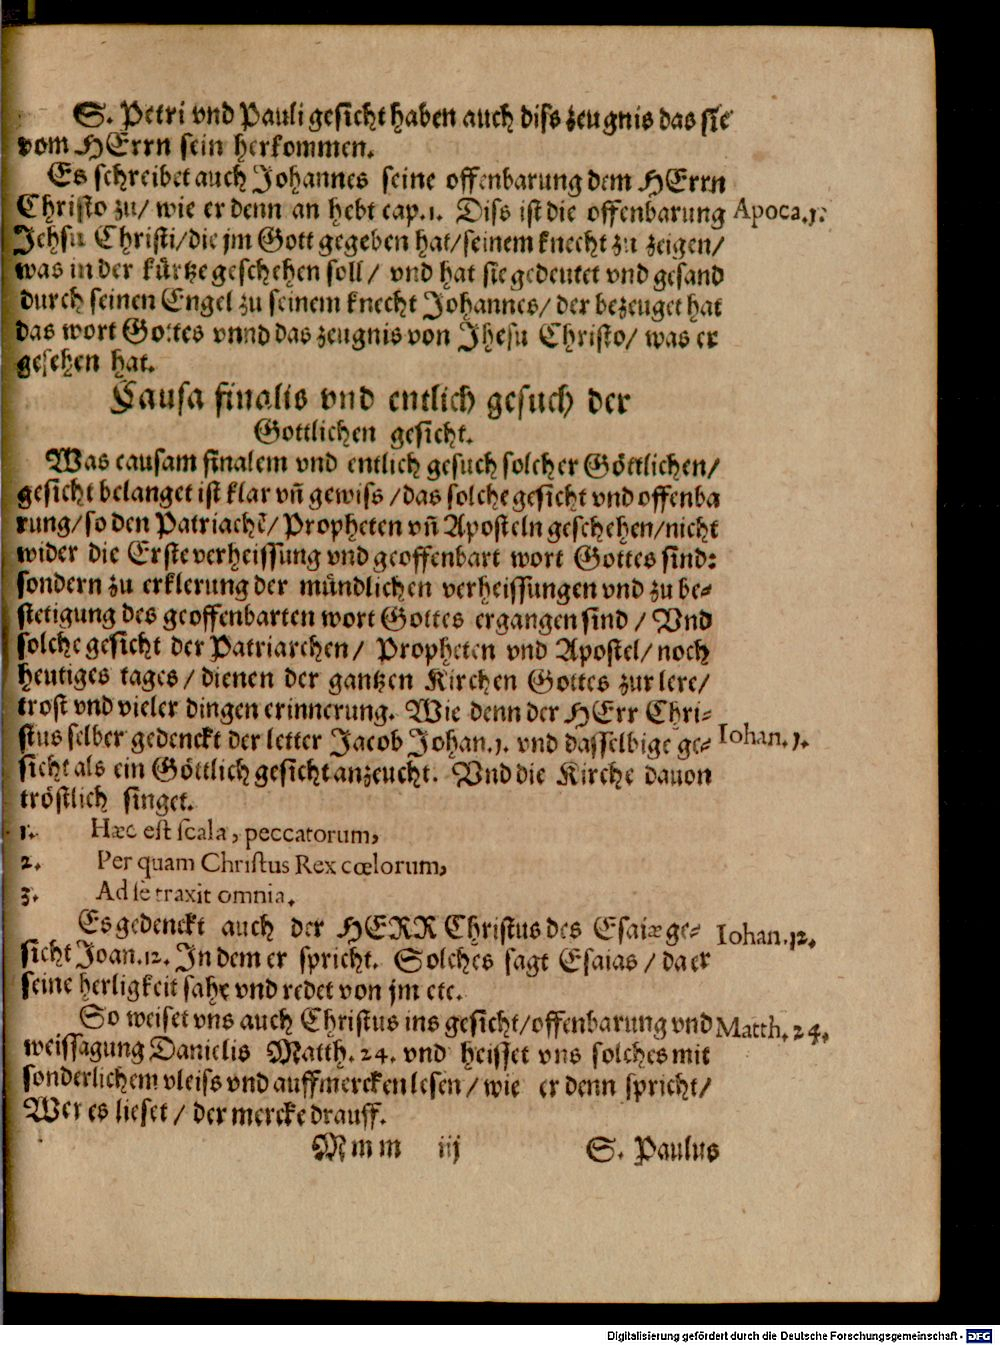 S. Petri vnd Pauli gesicht haben auch diss zeugnis das sie
vom HErrn sein herkommen.
Es schreibet auch Johannes seine offenbarung dem HErrn
Christo zu/ wie er denn an hebt cap.1. Diss ist die offenbarung Apoca.1.
Jehsu Christi/die jm Gott gegeben hat/seinem knecht zu zeigen/
was in der kürtze geschehen soll/ vnd hat sie gedeutet vnd gesand
durch seinen Engel zu seinem knecht Johannes/ der bezeuget hat
das wort Gottes vnnd das zeugnis von Jhesu Christo/ was er
gesehen hat.
Causa finalis vnd entlich gesuch der
Gottlichen gesicht.
Was causam finalem vnd entlich gesuch solcher Göttlichen/
gesicht belanget ist klar vñ gewiss/das solche gesicht vnd offenba
rung/so den Patriachẽ/Propheten vñ Aposteln geschehen/nicht
wider die Erste verheissung vnd geoffenbart wort Gottes sind:
sondern zu erklerung der mündlichen verheissungen vnd zu be-
stetigung des geoffenbarten wort Gottes ergangen sind/ Vnd
solche gesicht der Patriarchen/ Propheten vnd Apostel/ noch
heutiges tages/ dienen der gantzen Kirchen Gottes zur lere/
trost vnd vieler dingen erinnerung. Wie denn der HErr Chri-
stus selber gedenckt der letter Jacob Johan.1. vnd dasselbige ge- Iohan.1.
sicht als ein Göttlich gesicht anzeucht. Vnd die Kirche dauon
tröstlich singet.
1. Hæc est scala, peccatorum,
2. Per quam Christus Rex cœlorum,
3. Ad se traxit omnia.
Es gedenckt auch der HERR Christus des Esaiæ ge- Iohan.12.
sicht Joan.12. In dem er spricht. Solches sagt Esaias/ da er
seine herligkeit sahe vnd redet von jm etc.
So weiset vns auch Christus ins gesicht/offenbarung vnd Matth.24.
weissagung Danielis Matth.24. vnd heisset vns solches mit
sonderlichem vleiss vnd auffmercken lesen/ wie er denn spricht/
Wer es lieset/ der mercke drauff.
Mmm iij S. Paulus
Digitalisierung gefördert durch die Deutsche Forschungsgemeinschaft - DFG